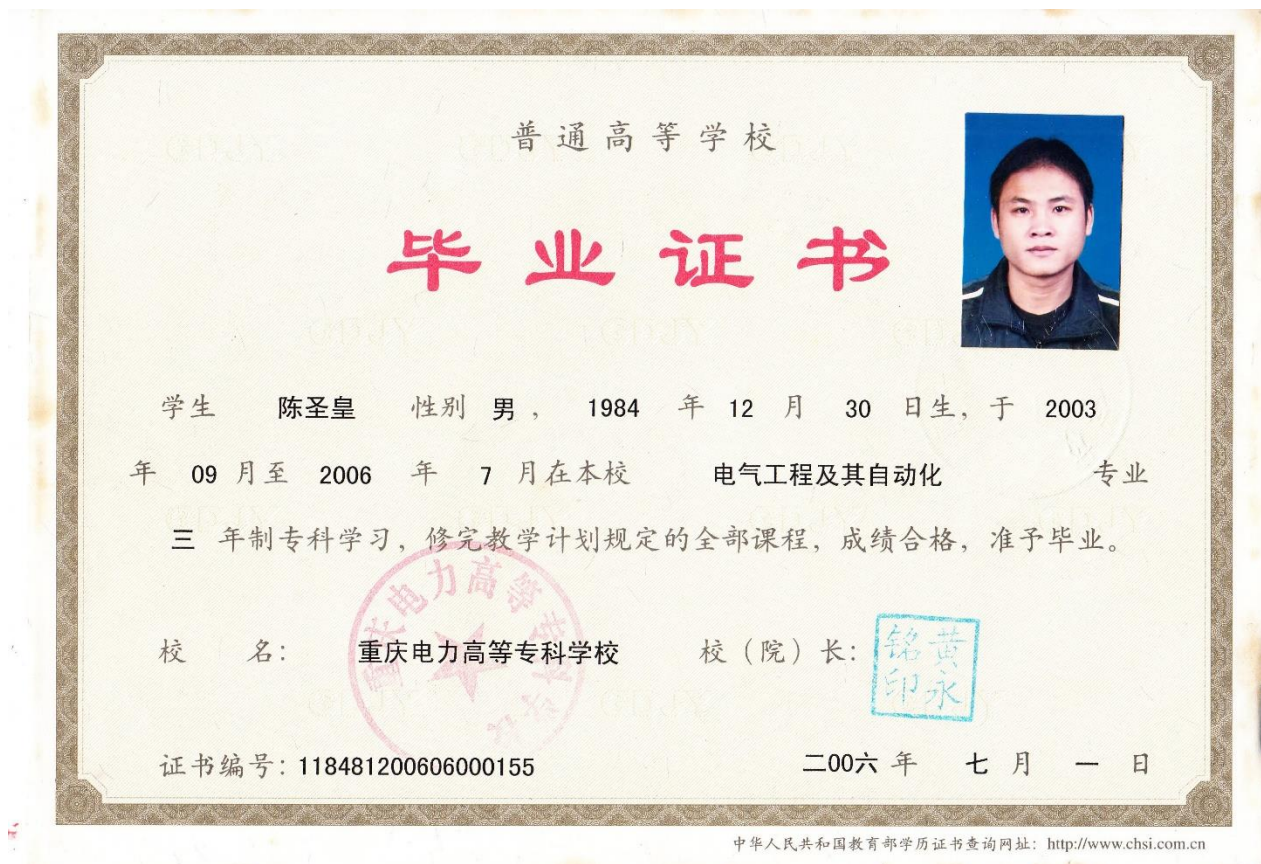 普通高等学校
毕业证书
学生 陈圣皇 性别 男 ， 1984 年 12 月 30 日生，于 2003
年 09 月至 2006 年 7 月在本校 电气工程及其自动化 专业
三 年制专科学习，修完教学计划规定的全部课程，成绩合格，准予毕业。
重庆电力高等专科学校
校 名： 重庆电力高等专科学校 校（院）长： 黄永铭印
证书编号：118481200606000155 二00六 年 七 月 一 日
中华人民共和国教育部学历证书查询网址：http://www.chsi.com.cn